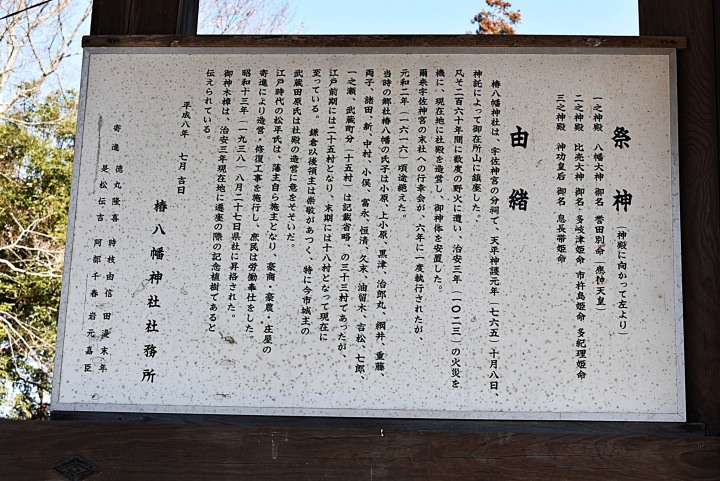 祭神（神殿に向かって左より）
一之神殿　八幡大神　御名　誉田別命（應神天皇）
二之神殿　比売大神　御名・多岐津姫命　市杵島姫命　多紀理姫命
三之神殿　神功皇后　御名　息長帯姫命
由緒
椿八幡神社は、宇佐神宮の分祠で、天平神護元年（七六五）十月八日、
神託によって御在所山に鎮座した。
凡そ二百六十年間に数度の野火に遭い、治安三年（一〇二三）の火災を
機に、現在地に社殿を造営し、御神体を安置した。
爾来宇佐神宮の末社への行幸会が、六年に一度執行されたが、
元和二年（一六一六）頃途絶えた。
当時の郷社椿八幡の氏子は小原、上小原、黒津、治郎丸、綱井、重藤、
両子、諸田、新、中村、小俣、富永、恒清、久末、油留木、吉松、七郎、
一之瀬、武蔵町分（十五村）は記載省略、の三十三村であったが、
江戸前期には二十五村となり、末期には十八村となって現在に
至っている。　鎌倉以後領主は崇敬があつく、特に今市城主の
武蔵田原氏は社殿の造営に意をそそいだ。
江戸時代の松平氏は、藩主自ら施主となり、豪商・豪農・庄屋の
寄進により造営・修復工事を施行し、庶民は労働奉仕をした。
昭和十三年（一九三八）八月二十七日県社に昇格された。
御神木樟は、治安三年現在地に遷座の際の記念植樹であると
伝えられている。
平成八年　七月　吉日
椿八幡神社社務所
寄進　徳丸隆喜　時枝由信　田淺末年
是松伝吉　阿部千春　岩元嘉臣